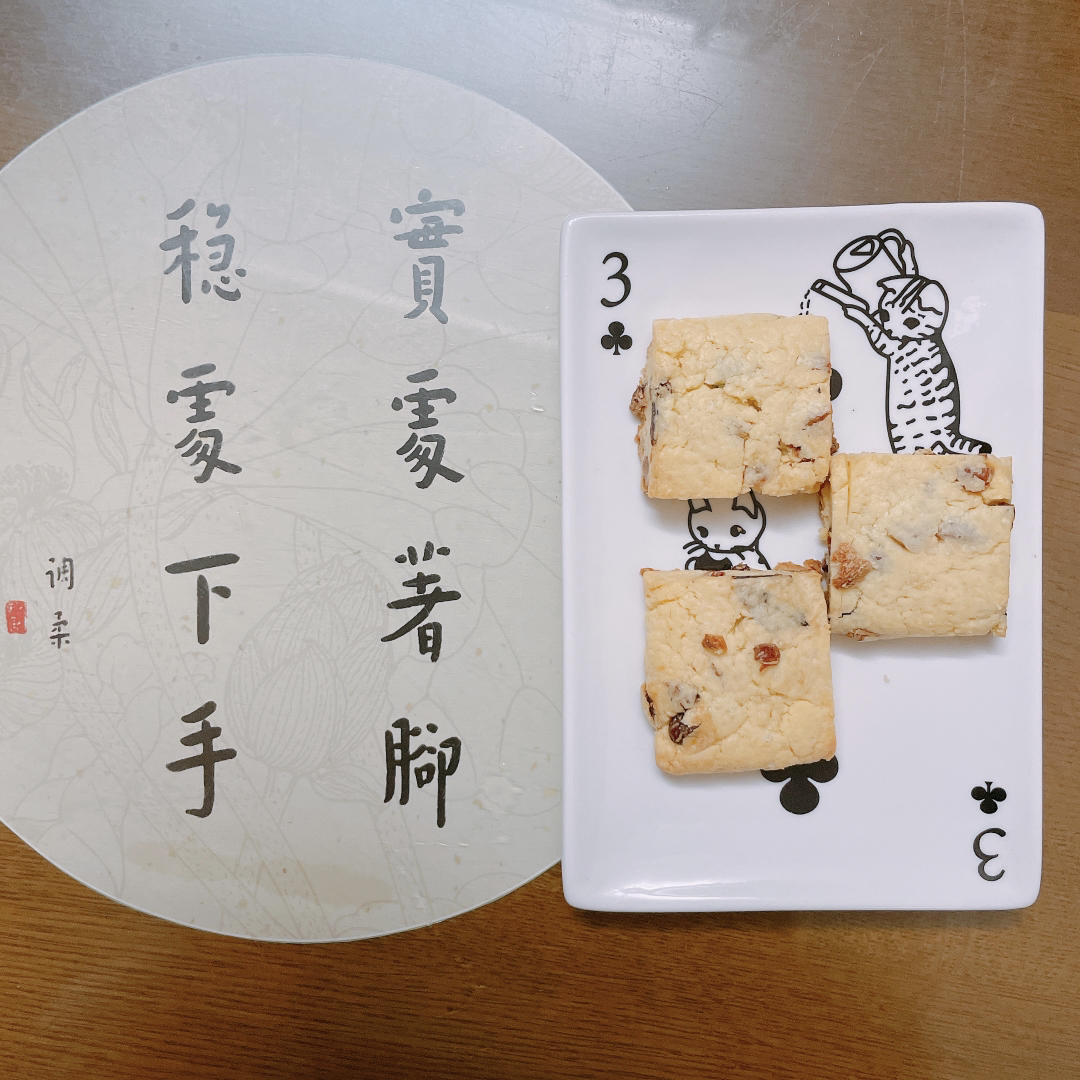 實處著腳
稳處下手
调柔
3
3